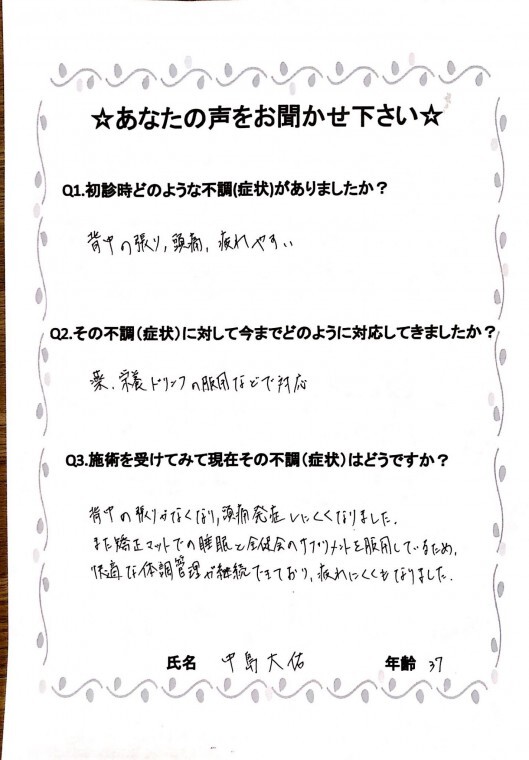 ☆あなたの声をお聞かせ下さい☆
Q1.初診時どのような不調(症状)がありましたか？
背中の張り,頭痛,疲れやすい
Q2.その不調（症状）に対して今までどのように対応してきましたか？
薬.栄養ドリンクの服用などで対応
Q3.施術を受けてみて現在その不調（症状）はどうですか？
背中の張りがなくなり,頭痛発症しにくくなりました.
また矯正マットでの睡眠と全健会のサプリメントを服用しているため,
快適な体調管理が継続できており,疲れにくくもなりました.
氏名 中島大佑 年齢 37